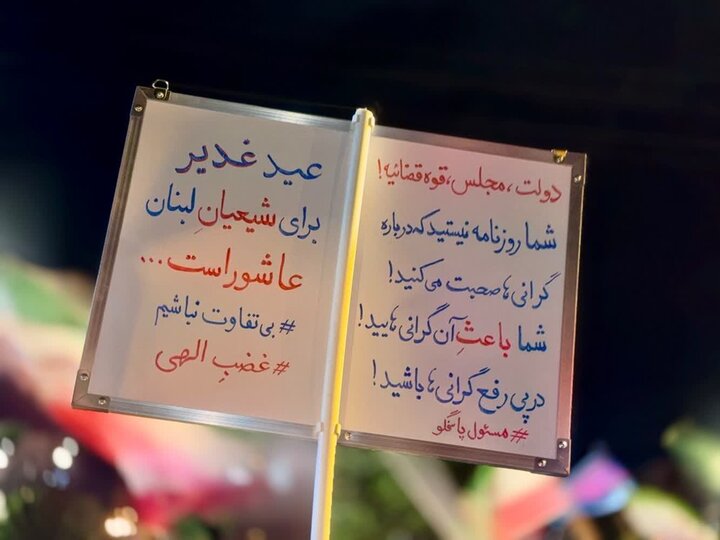 دولت، مجلس، قوه قضائیه!
شما روزنامه نیستید که درباره
گرانی ها صحبت می کنید!
شما باعثِ آن گرانی هایید!
در پی رفع گرانی ها باشید!
#مسئول پاسخگو
عید غدیر
برای شیعیانِ لبنان
عاشوراست...
#بی تفاوت نباشیم
#غضبِ الهی